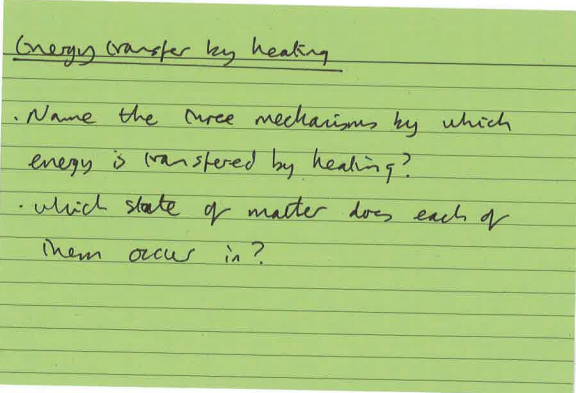 Energy transfer by heating
. Name the three mechanisms by which
energy is transfered by heating?
. which state of matter does each of
them occur in?